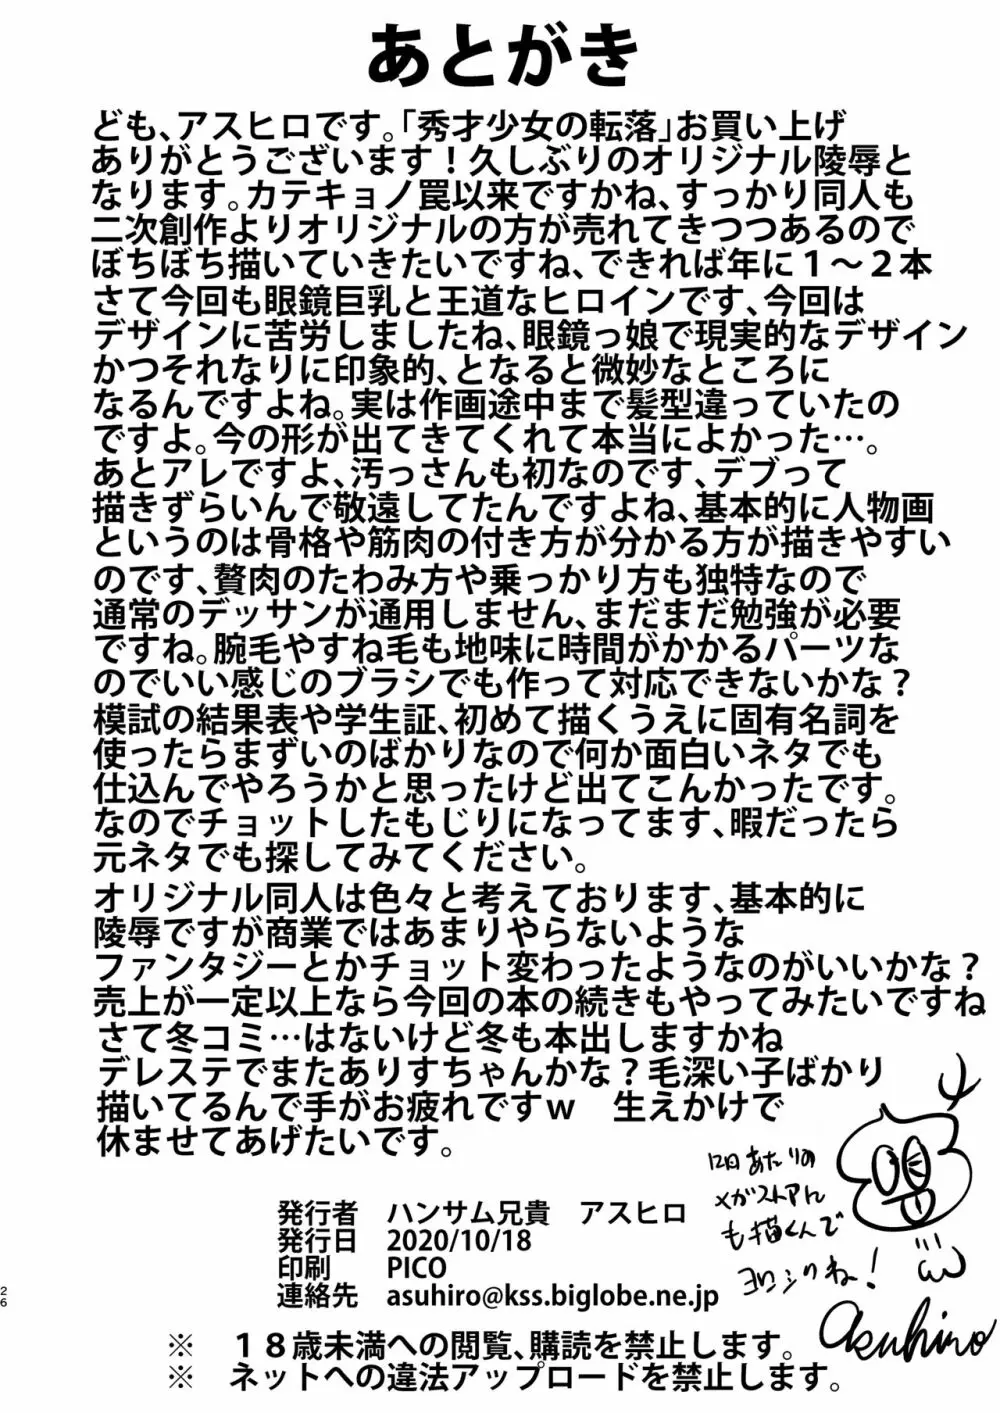 あとがき
ども、アスヒロです。「秀才少女の転落」お買い上げ
ありがとうございます！久しぶりのオリジナル陵辱と
なります。カテキョノ罠以来ですかね、すっかり同人も
二次創作よりオリジナルの方が売れてきつつあるので
ぼちぼち描いていきたいですね、できれば年に１～２本
さて今回も眼鏡巨乳と王道なヒロインです、今回は
デザインに苦労しましたね、眼鏡っ娘で現実的なデザイン
かつそれなりに印象的、となると微妙なところに
なるんですよね。実は作画途中まで髪型違っていたの
ですよ。今の形が出てきてくれて本当によかった…。
あとアレですよ、汚っさんも初なのです、デブって
描きずらいんで敬遠してたんですよね、基本的に人物画
というのは骨格や筋肉の付き方が分かる方が描きやすい
のです、贅肉のたわみ方や乗っかり方も独特なので
通常のデッサンが通用しません、まだまだ勉強が必要
ですね。腕毛やすね毛も地味に時間がかかるパーツな
のでいい感じのブラシでも作って対応できないかな？
模試の結果表や学生証、初めて描くうえに固有名詞を
使ったらまずいのばかりなので何か面白いネタでも
仕込んでやろうかと思ったけど出てこんかったです。
なのでチョットしたもじりになってます、暇だったら
元ネタでも探してみてください。
オリジナル同人は色々と考えております、基本的に
陵辱ですが商業ではあまりやらないような
ファンタジーとかチョット変わったようなのがいいかな？
売上が一定以上なら今回の本の続きもやってみたいですね
さて冬コミ…はないけど冬も本出しますかね
デレステでまたありすちゃんかな？毛深い子ばかり
描いてるんで手がお疲れですｗ　生えかけで
休ませてあげたいです。
12月あたりの
メガストアん
も描くんで
ヨロシクね！
発行者　ハンサム兄貴　アスヒロ
発行日　2020/10/18
印刷　PICO
連絡先　asuhiro@kss.biglobe.ne.jp
Asuhiro
※　１８歳未満への閲覧、購読を禁止します。
※　ネットへの違法アップロードを禁止します。
26